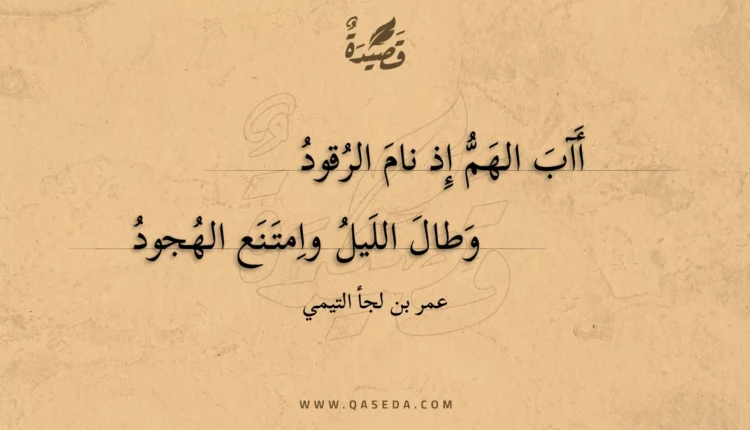 قَصِيدَةٌ
أََآبَ الهَمُّ إِذ نامَ الرُقودُ
وَطالَ اللَيلُ واِمتَنَع الهُجودُ
عمر بن لجأ التيمي
WWW.QASEDA.COM